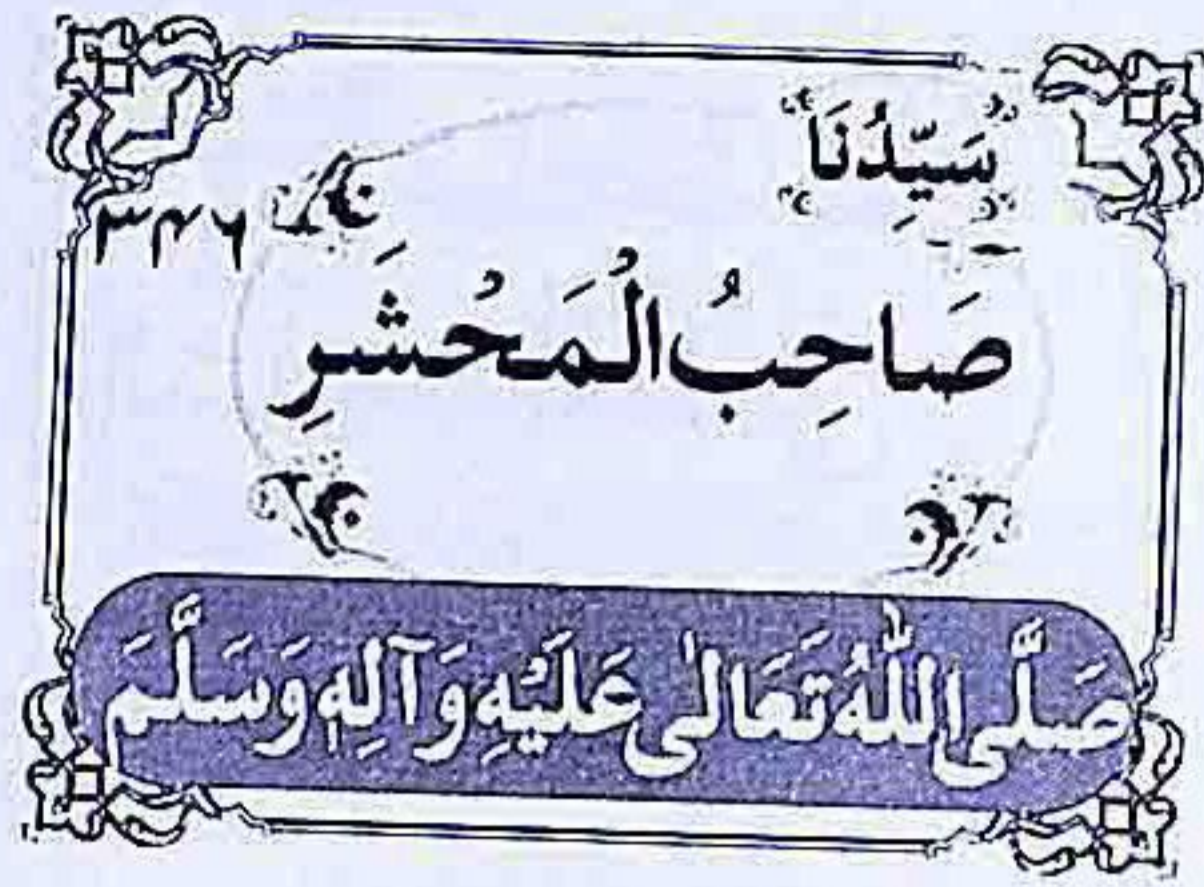 سَيِّدُنَا
۳۴۶
صَاحِبُ الْمَحْشَرِ
صَلَّى اللهُ تَعَالٰى عَلَيْهِ وَآلِهٖ وَسَلَّمَ